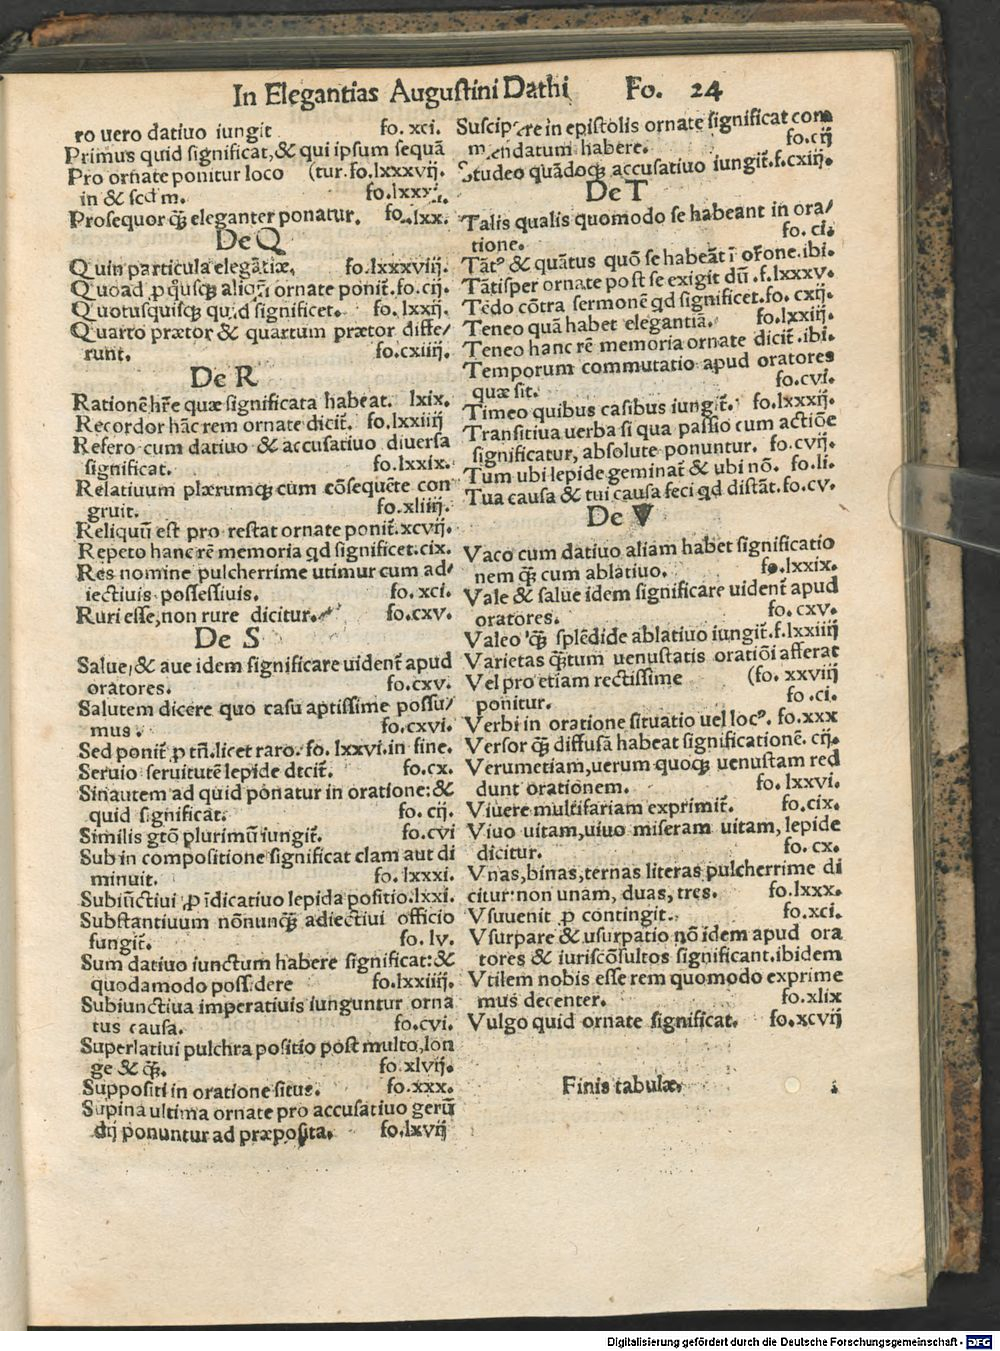 In Elegantias Augustini Dathi Fo. 24
ro uero datiuo iungit fo. xci.
Primus quid significat, & qui ipsum sequā
Pro ornate ponitur loco (tur.fo.lxxxvij.
in & secūm. fo.lxxxi.
Prosequor q̄ꝫ eleganter ponatur. fo.lxx.
De Q
Quin particula elegātiæ. fo.lxxxviij.
Quoad ꝑ quusqꝫ aliqñ ornate ponit̄.fo.cij.
Quotusquisqꝫ quid significet. fo. lxxij.
Quarto prætor & quartum prætor diffe/
runt. fo.cxiiij.
De R
Rationē hr̄e quæ significata habeat. lxix.
Recordor hāc rem ornate dicit̄. fo.lxxiiij
Refero cum datiuo & accusatiuo diuersa
significat. fo.lxxix.
Relatiuum plærumqꝫ cum cōsequēte con
gruit. fo.xliiij.
Reliquū est pro restat ornate ponit̄.xcvij.
Repeto hanc rē memoria qd significet.cix.
Res nomine pulcherrime utimur cum ad/
iectiuis possessiuis. fo. xci.
Ruri esse, non rure dicitur. fo.cxv.
De S
Salue, & aue idem significare uident̄ apud
oratores. fo.cxv.
Salutem dicere quo casu aptissime possu/
mus. fo.cxvi.
Sed ponit̄ ꝑ tñ.licet raro. fo. lxxvi.in fine.
Seruio seruitutē lepide dicit̄. fo.cx.
Sinautem ad quid ponatur in oratione: &
quid significat. fo. cij.
Similis gtō plurimū iungit̄. fo.cvi
Sub in compositione significat clam aut di
minuit. fo. lxxxi.
Subiūctiui ꝑ īdicatiuo lepida positio.lxxi.
Substantiuum nōnunq̄ꝫ adiectiui officio
fungit̄. fo. lv.
Sum datiuo iunctum habere significat: &
quodamodo possidere fo.lxxiiij.
Subiunctiua imperatiuis iunguntur orna
tus causa. fo.cvi.
Superlatiui pulchra positio post multo, lon
ge & q̄ꝫ. fo.xlvij.
Suppositi in oratione situs. fo.xxx.
Supina ultima ornate pro accusatiuo gerū
dij ponuntur ad præposita. fo.lxvij
Suscipere in epistolis ornate significat com
mendatum habere. fo.cij
Studeo quādoqꝫ accusatiuo iungit.f.cxiij.
De T
Talis qualis quomodo se habeant in ora/
tione. fo. ci.
Tātꝰ & quātus quō se habeāt ī or̄one.ibi.
Tātisper ornate post se exigit dū .f.lxxxv.
Tēdo cōtra sermonē qd significet.fo. cxij.
Teneo quā habet elegantiā. fo.lxxiij.
Teneo hanc rē memoria ornate dicit̄.ibi.
Temporum commutatio apud oratores
quæ sit. fo.cvi.
Timeo quibus casibus iungit̄. fo.lxxxij.
Transitiua uerba si qua passio cum actiōe
significatur, absolute ponuntur. fo.cvij.
Tum ubi lepide geminat̄ & ubi nō. fo.li.
Tua causa & tui causa feci qd distāt.fo.cv.
De V
Vaco cum datiuo aliam habet significatio
nem q̄ꝫ cum ablatiuo. fo.lxxix.
Vale & salue idem significare uident̄ apud
oratores. fo.cxv.
Valeo q̄ꝫ splēdide ablatiuo iungit̄.f.lxxiiij
Varietas q̄ꝫtum uenustatis oratiōi afferat
Vel pro etiam rectissime (fo. xxviij
ponitur. fo .ci.
Verbi in oratione situatio uel locꝰ. fo.xxx
Versor q̄ꝫ diffusā habeat significationē. cij.
Verumetiam, uerum quoqꝫ uenustam red
dunt orationem. fo. lxxvi.
Viuere multifariam exprimit̄. fo.cix.
Viuo uitam, uiuo miseram uitam, lepide
dicitur. fo. cx.
Vnas, binas, ternas literas pulcherrime di
citur: non unam, duas, tres. fo.lxxx.
Vsuuenit ꝑ contingit. fo.xci.
Vsurpare & usurpatio nō idem apud ora
tores & iuriscōsultos significant.ibidem
Vtilem nobis esse rem quomodo exprime
mus decenter. fo.xlix
Vulgo quid ornate significat. fo.xcvij
Finis tabulæ.
Digitalisierung gefördert durch die Deutsche Forschungsgemeinschaft - DFG